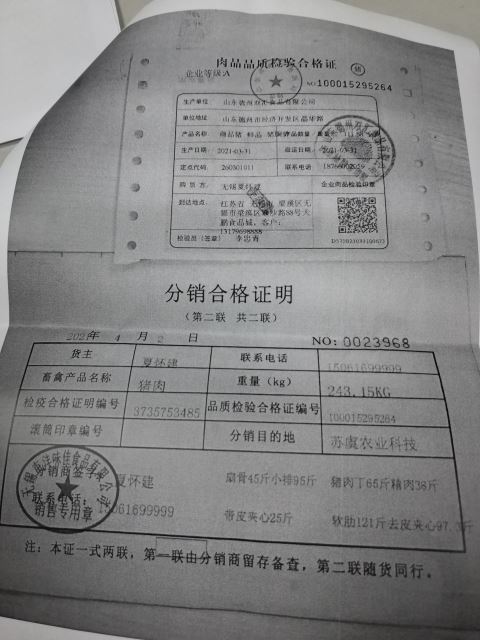 肉品品质检验合格证
猪
企业等级A
NO 100015295264
生产单位: 山东德州双汇食品有限公司
单位地址: 山东德州市经济开发区晶华路
产品名称 商品猪 鲜品
生产日期 2021-03-31 2021-03-31
定点代码 260301011 联系电话
购货方: 无锡夏怀建 企业肉品检验印章
到达地点: 江苏省 无锡市 梁溪区无
锡市梁溪区 88号天
鹏食品城, 客户:
13179698888
检验员(签章)
分销合格证明
(第二联 共二联)
2021年 4 月 2 日 NO: 0023968
货主 夏怀建 联系电话 15061699999
畜禽产品名称 猪肉 重量(kg) 243.15KG
检疫合格证明编号 3735753485 品质检验合格证编号 100015295264
滚筒印章编号 分销目的地 苏虞农业科技
分销商签 夏怀建 扇骨45斤小排95斤 猪肉丁65斤精肉38斤
联系电话: 15061699999 带皮夹心25斤 软肋121斤去皮夹心97.3斤
销售专用章
注: 本证一式两联, 第一联由分销商留存备查, 第二联随货同行。